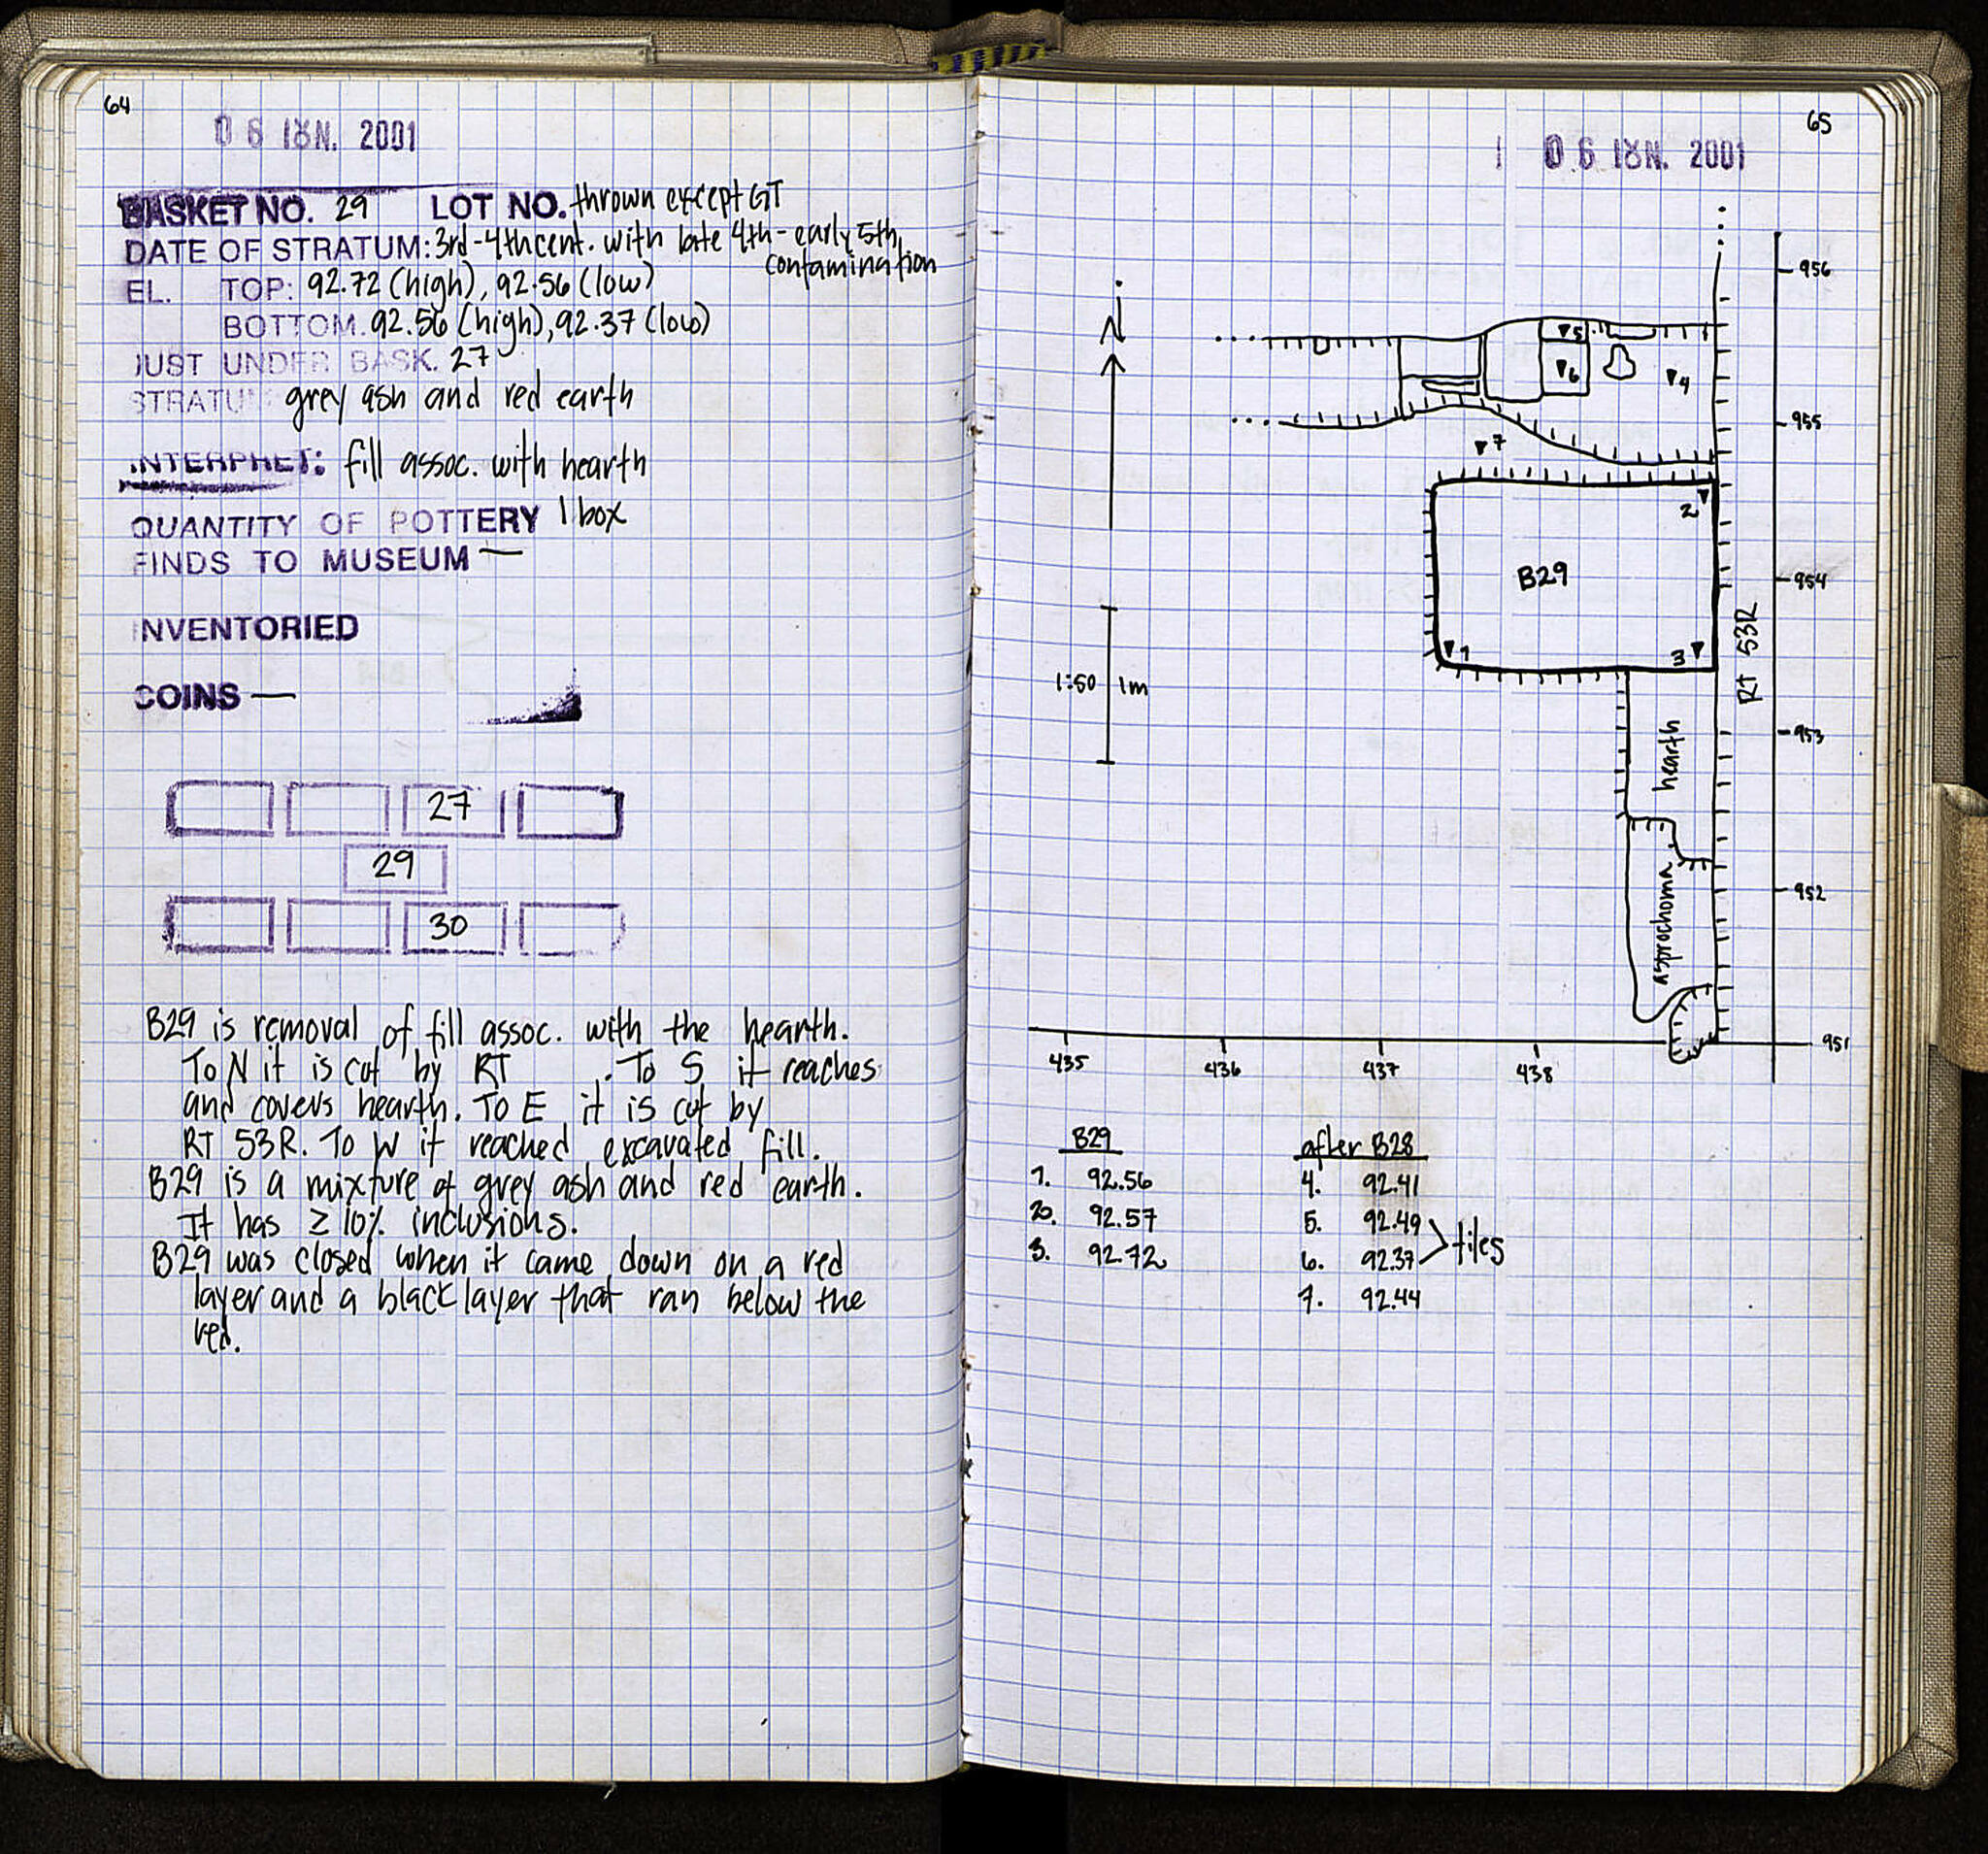 64
06 ΙΟΥΝ. 2001
BASKET NO. 29 LOT NO. thrown except GT
DATE OF STRATUM: 3rd-4th cent. with late 4th-early 5th
contamination
EL. TOP: 92.72 (high), 92.56 (low)
BOTTOM. 92.56 (high), 92.37 (low)
JUST UNDER BASK. 27
STRATUM grey ash and red earth
INTERPRET: fill assoc. with hearth
QUANTITY OF POTTERY 1 box
FINDS TO MUSEUM —
INVENTORIED
COINS —
27
29
30
B29 is removal of fill assoc. with the hearth.
To N it is cut by RT . To S it reaches
and covers hearth. To E it is cut by
RT 53R. To W it reached excavated fill.
B29 is a mixture of grey ash and red earth.
It has ≥ 10% inclusions.
B29 was closed when it came down on a red
layer and a black layer that ran below the
red.
65
06 ΙΟΥΝ. 2001
N
956
5
6
4
955
7
2
B29
954
1
3
RT 53R
1:50 1m
953
hearth
952
asprochoma
951
435 436 437 438
B29
1. 92.56
2. 92.57
3. 92.72
after B28
4. 92.41
5. 92.49
6. 92.37
tiles
7. 92.44